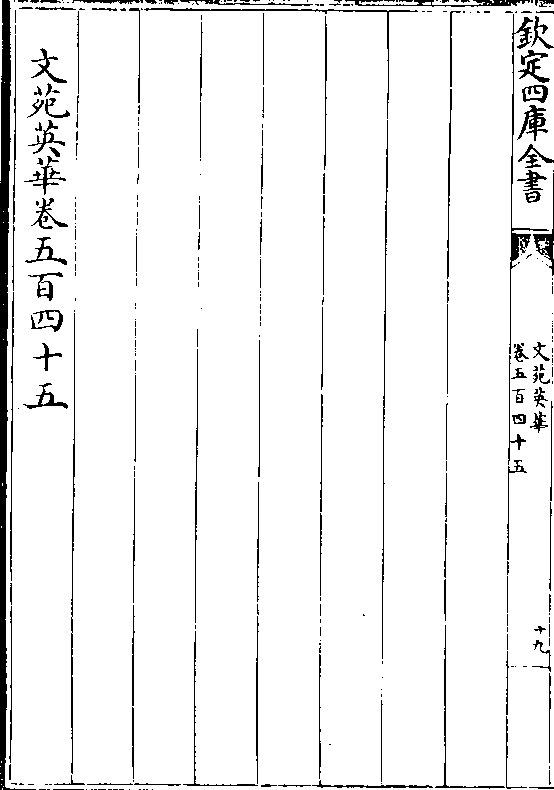 欽定四庫全書
文苑英華
卷五百四十五
十九
文苑英華卷五百四十五